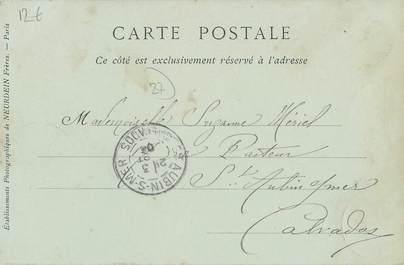 12 €
CARTE POSTALE
Ce côté est exclusivement réservé à l'adresse
37
Mademoiselle Suzanne Hériel
Pasteur
St Aubin s/mer
Calvados
Sᵗ AUBIN-S-MER
CALVADOS
24
3
03
Établissements Photographiques de NEURDEIN Frères. — Paris